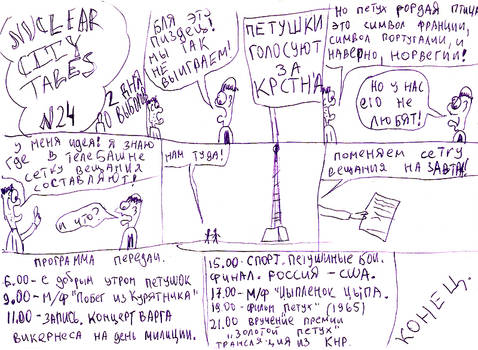 NUCLEAR
CITY
TALES
N24
2 ДНЯ
ДО ВЫБОРОВ
БЛЯ ЭТО
ПИЗДЕЦ!
МЫ ТАК
НЕ
ВЫИГРАЕМ!
ПЕТУШКИ
ГОЛОСУЮТ
ЗА
КРСТНА
НО ПЕТУХ ГОРДАЯ ПТИЦА
ЭТО СИМВОЛ ФРАНЦИИ,
СИМВОЛ ПОРТУГАЛИИ, И
НАВЕРНО, НОРВЕГИИ!
НО У НАС
ЕГО НЕ
ЛЮБЯТ!
У МЕНЯ ИДЕЯ! Я ЗНАЮ
ГДЕ В ТЕЛЕБАШНЕ
СЕТКУ ВЕЩАНИЯ
СОСТАВЛЯЮТ!
И ЧТО?
НАМ ТУДА!
ПОМЕНЯЕМ СЕТКУ
ВЕЩАНИЯ НА ЗАВТРА!
ПРОГРАММА ПЕРЕДАЧ.
6.00 - С ДОБРЫМ УТРОМ ПЕТУШОК
9.00 - М/Ф "ПОБЕГ ИЗ КУРЯТНИКА"
11.00 - ЗАПИСЬ. КОНЦЕРТ ВАРГА
ВИКЕРНЕСА НА ДЕНЬ МИЛИЦИИ.
15.00 - СПОРТ. ПЕТУШИНЫЕ БОИ.
ФИНАЛ. РОССИЯ - США.
17.00 - М/Ф "ЦЫПЛЕНОК ЦЫПА.
19.00 - ФИЛЬМ ПЕТУХ" (1965)
21.00 ВРУЧЕНИЕ ПРЕМИИ
"ЗОЛОТОЙ ПЕТУХ"
ТРАНСЛЯЦИЯ ИЗ КНР.
КОНЕЦ.